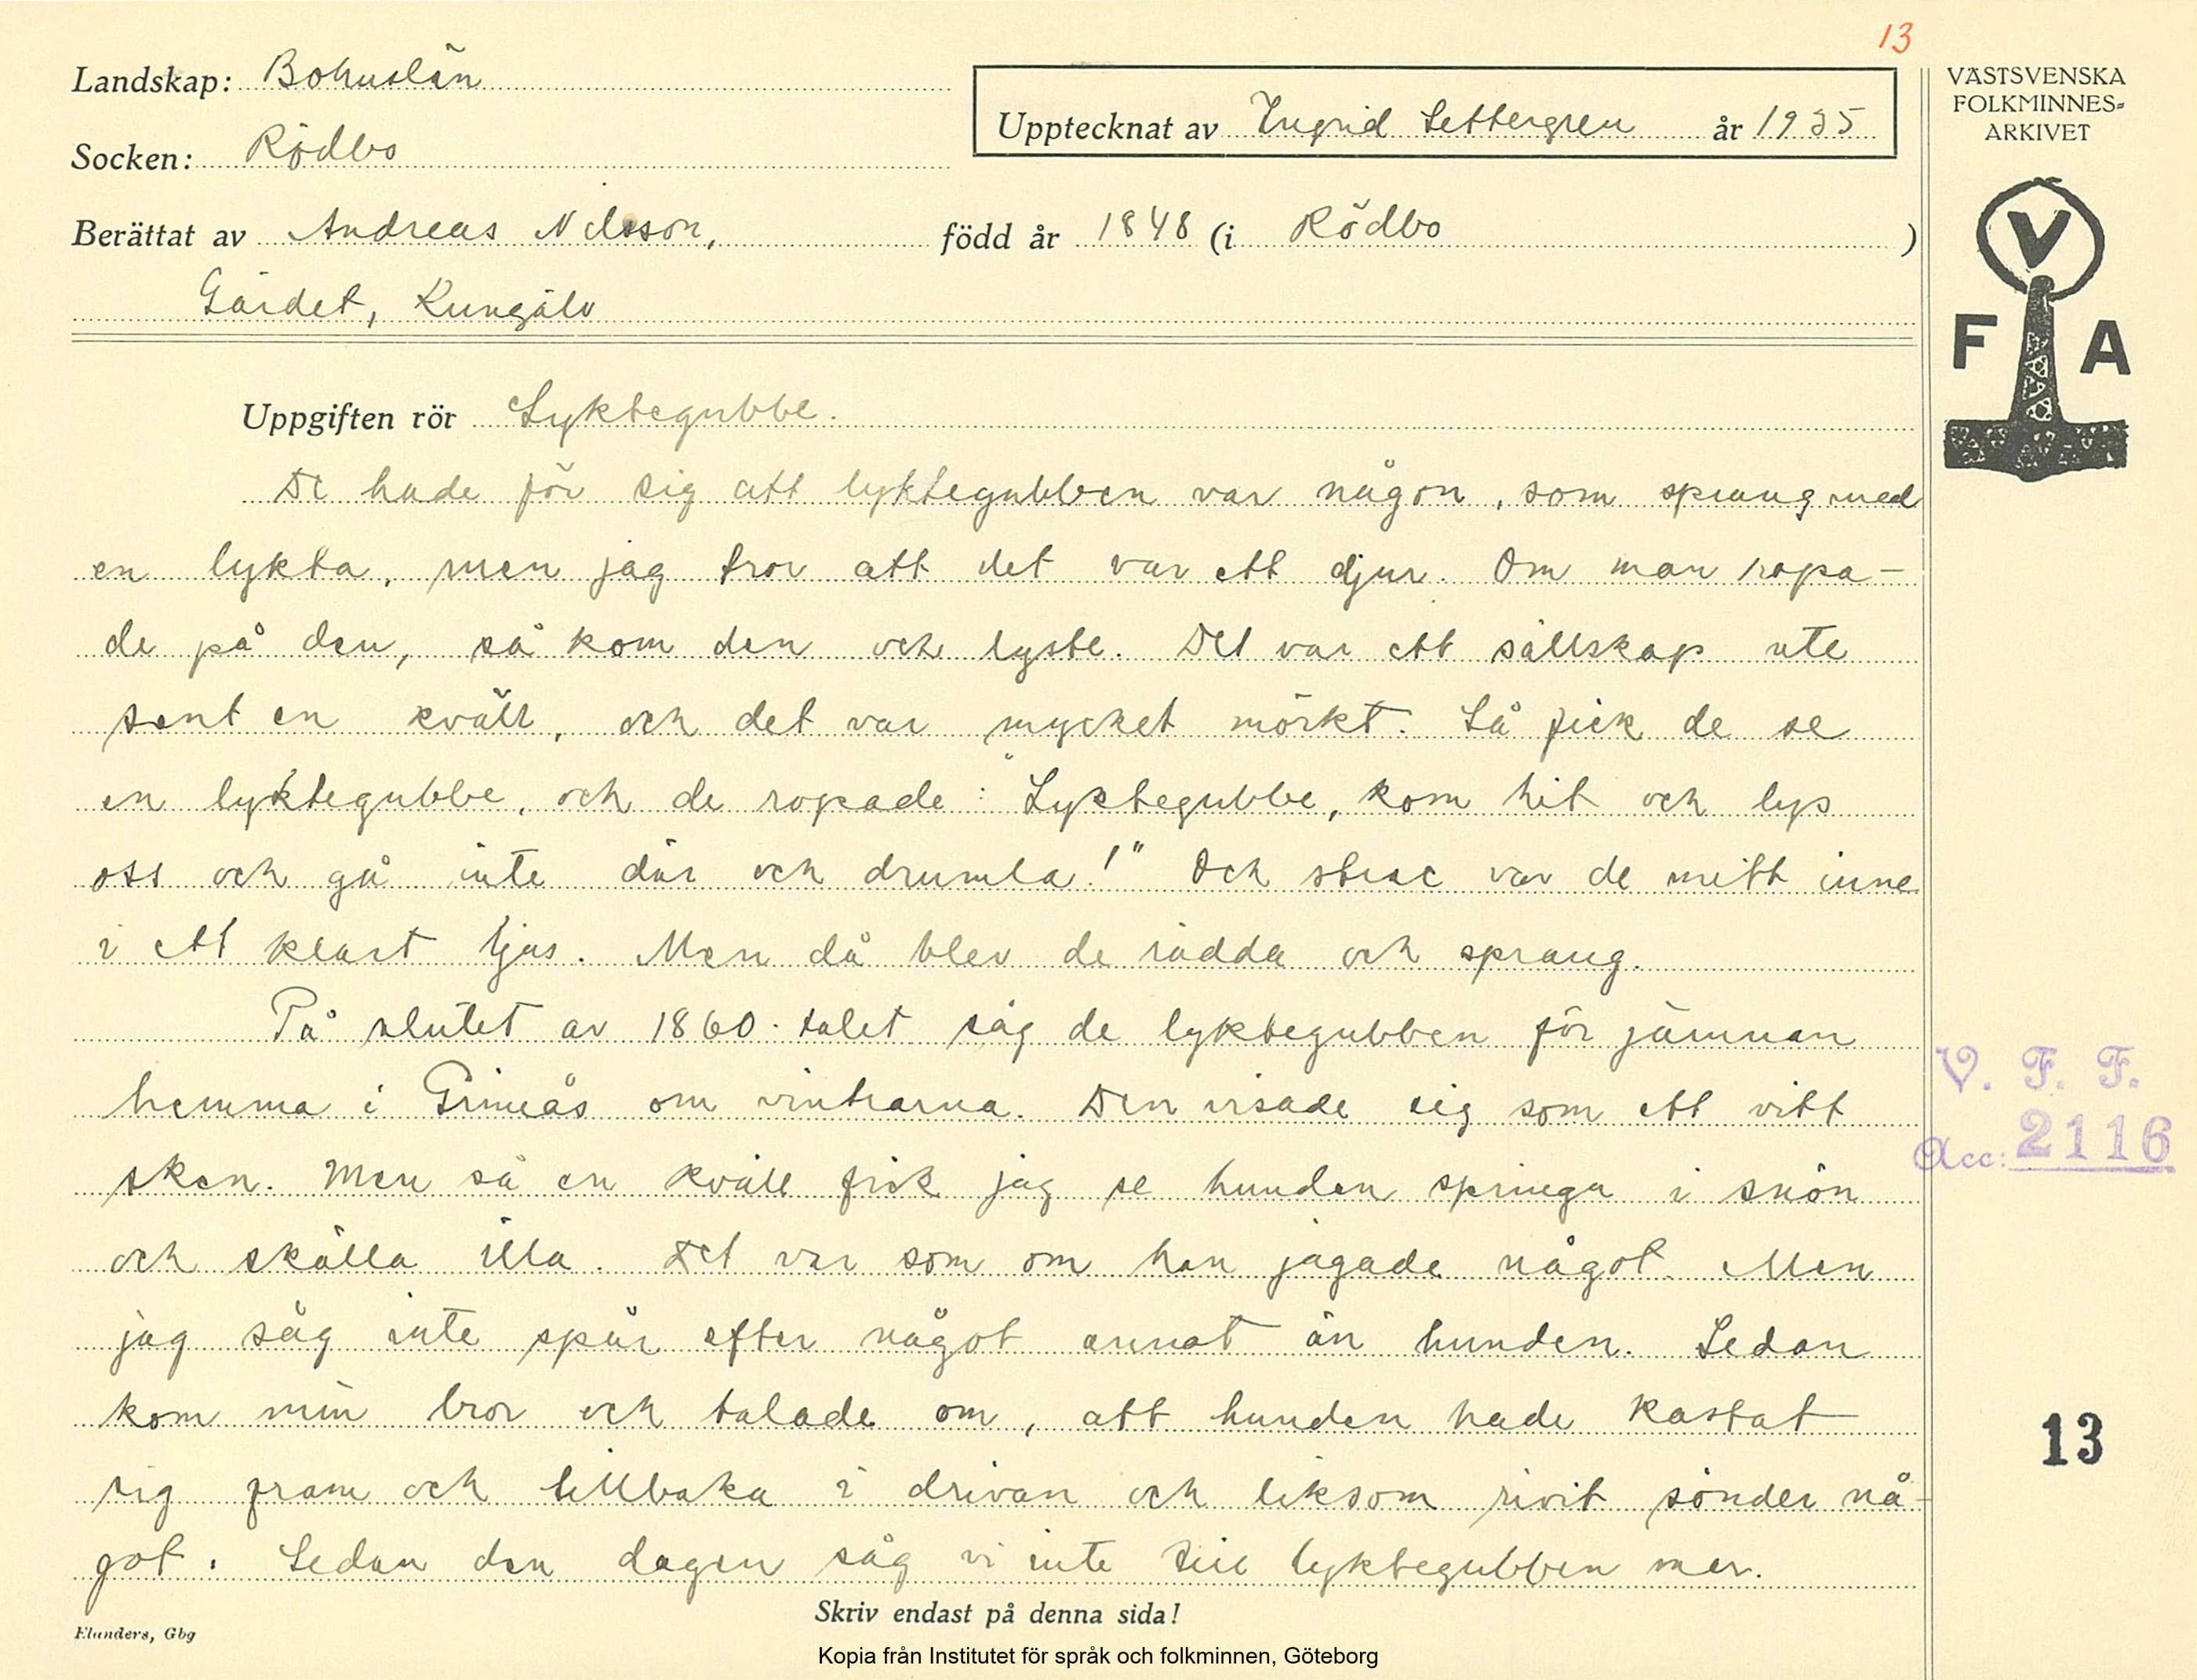 13
Landskap: Bohuslän
Socken: Rödbo
Upptecknat av Ingrid Settergren år 1935
Berättat av Andreas Nilsson, född år 1848 (i Rödbo )
Gärdet, Kungälv
VÄSTSVENSKA
FOLKMINNES-
ARKIVET
V
F A
Uppgiften rör Lyktegubbe.
De hade för sig att lyktegubben var någon, som sprang med
en lykta, men jag tror att det var ett djur. Om man ropa-
de på den, så kom den och lyste. Det var ett sällskap ute
sent en kväll, och det var mycket mörkt. Så fick de se
en lyktegubbe, och de ropade: "Lyktegubbe, kom hit och lys
oss och gå inte där och drumla!" Och strax var de mitt inne
i ett klart ljus. Men då blev de rädda och sprang.
På slutet av 1860-talet såg de lyktegubben för jämnan
hemma i Grineås om vintrarna. Den visade sig som ett vitt
sken. Men så en kväll fick jag se hunden springa i snön
och skälla illa. Det var som om han jagade något. Men
jag såg inte spår efter något annat än hunden. Sedan
kom min bror och talade om, att hunden hade kastat
sig fram och tillbaka i drivan och liksom rivit sönder nå-
got. Sedan den dagen såg vi inte till lyktegubben mer.
V. F. F.
Acc: 2116
13
Skriv endast på denna sida!
Elanders, Gbg
Kopia från Institutet för språk och folkminnen, Göteborg